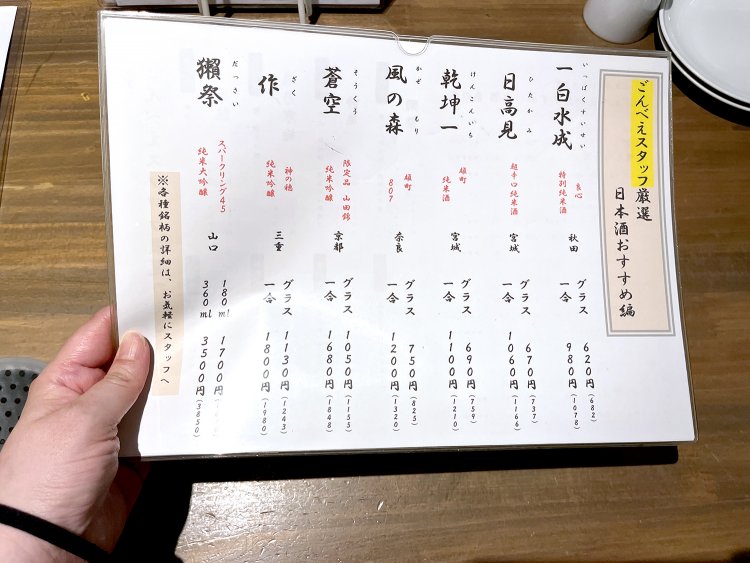 ごんべえスタッフ厳選
日本酒おすすめ編
いっぱくすいせい
一白水成
良心
特別純米酒
秋田
グラス 620円(682)
一合 980円(1078)
ひたかみ
日高見
超辛口純米酒
宮城
グラス 670円(737)
一合 1060円(1166)
けんこんいち
乾坤一
雄町
純米酒
宮城
グラス 690円(759)
一合 1100円(1210)
かぜ もり
風の森
雄町
807
奈良
グラス 750円(825)
一合 1200円(1320)
そうくう
蒼空
限定品 山田錦
純米吟醸
京都
グラス 1050円(1155)
一合 1680円(1848)
ざく
作
神の穂
純米吟醸
三重
グラス 1130円(1243)
一合 1800円(1980)
だっさい
獺祭
スパークリング45
純米大吟醸
山口
180ml 1700円
360ml 3500円(3850)
※各種銘柄の詳細は、お気軽にスタッフへ